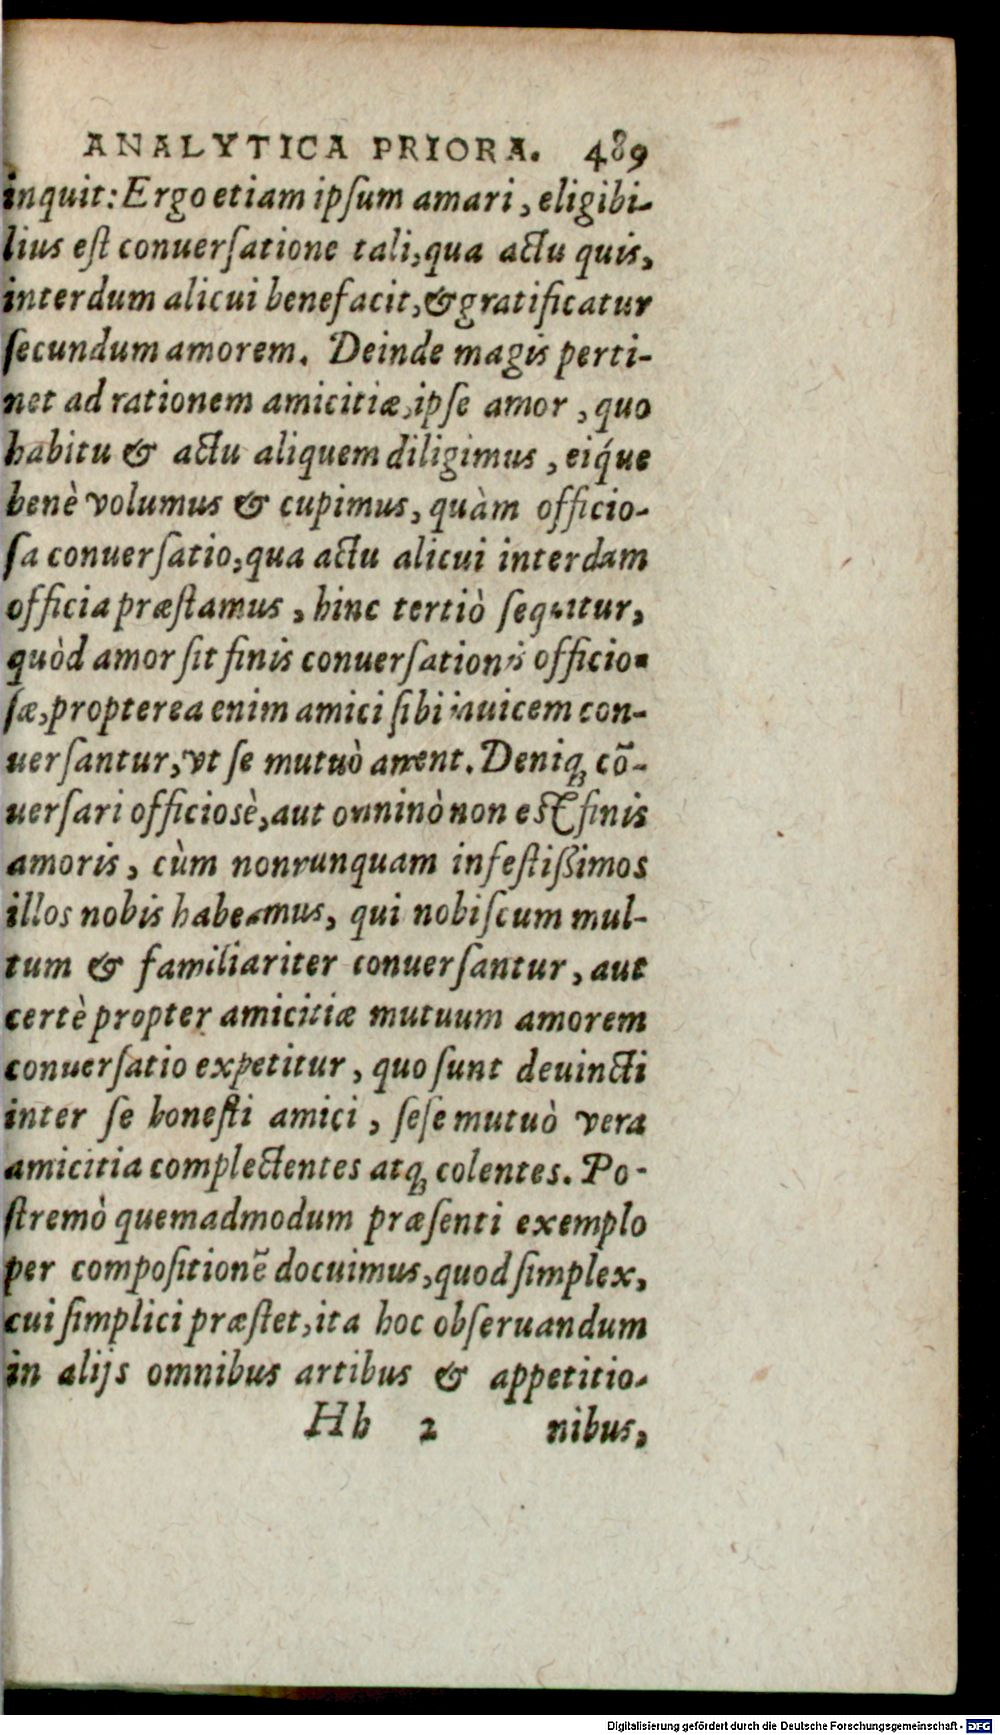 ANALYTICA PRIORA. 489
inquit: Ergo etiam ipſum amari, eligibi-
lius eſt conuerſatione tali, qua actu quis,
interdum alicui benefacit, & gratificatur
ſecundum amorem. Deinde magis perti-
net ad rationem amicitiæ, ipſe amor, quo
habitu & actu aliquem diligimus, eiq́ue
benè volumus & cupimus, quàm officio-
ſa conuerſatio, qua actu alicui interdum
officia præſtamus, hinc tertiò ſequitur,
quòd amor ſit finis conuerſationis officio-
ſæ, propterea enim amici ſibi inuicem con-
uerſantur, vt ſe mutuò ament. Deniq; cō-
uerſari officiosè, aut omninò non eſt finis
amoris, cùm nonnunquam infeſtiſſimos
illos nobis habeamus, qui nobiſcum mul-
tum & familiariter conuerſantur, aut
certè propter amicitiæ mutuum amorem
conuerſatio expetitur, quo ſunt deuincti
inter ſe honeſti amici, ſeſe mutuò vera
amicitia complectentes atq; colentes. Po-
ſtremò quemadmodum præſenti exemplo
per compoſitionē docuimus, quod ſimplex,
cui ſimplici præſtet, ita hoc obſeruandum
in alijs omnibus artibus & appetitio-
Hh 2 nibus,
Digitalisierung gefördert durch die Deutsche Forschungsgemeinschaft - DFG